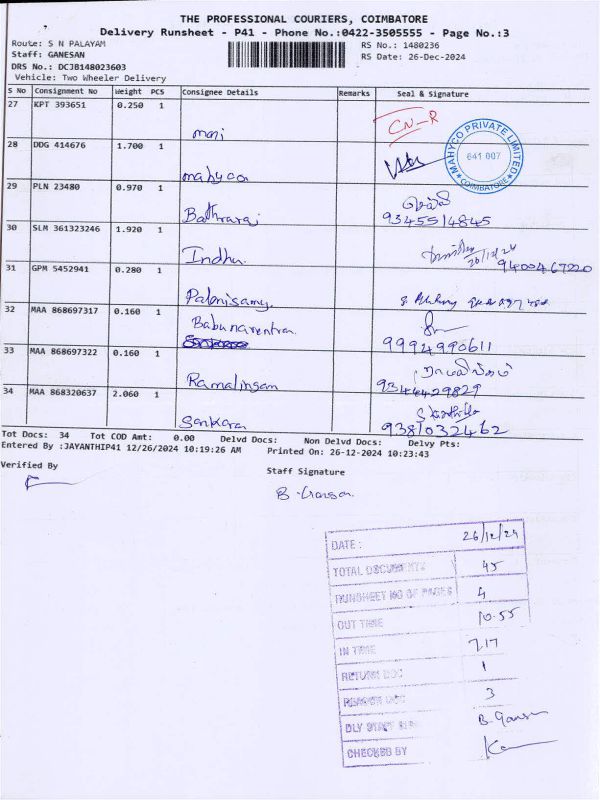 THE PROFESSIONAL COURIERS, COIMBATORE
Delivery Runsheet - P41 - Phone No.:0422-3505555 - Page No.:3
Route: S N PALAYAM RS No.: 1480236
Staff: GANESAN RS Date: 26-Dec-2024
DRS No.: DCJB148023603
Vehicle: Two Wheeler Delivery
S No Consignment No Weight PCS Consignee Details Remarks Seal & Signature
27 KPT 393651 0.250 1
mani CN-R
28 DDG 414676 1.700 1
mahyco
MAHYCO PRIVATE LIMITED
641 007
COIMBATORE
29 PLN 23480 0.970 1
Bathraraj 9345514845
30 SLM 361323246 1.920 1
Indhu 26/12/24
9400467220
31 GPM 5452941 0.280 1
Palanisamy
32 MAA 868697317 0.160 1
Babunarentra
9994990611
33 MAA 868697322 0.160 1
Ramalingam ராமலிங்கம்
9344429829
34 MAA 868320637 2.060 1
Sankara 9381032462
Tot Docs: 34 Tot COD Amt: 0.00 Delvd Docs: Non Delvd Docs: Delvy Pts:
Entered By :JAYANTHIP41 12/26/2024 10:19:26 AM Printed On: 26-12-2024 10:23:43
Verified By
Staff Signature
DATE : 26/12/24
TOTAL DOCUMENTS 45
RUNSHEET NO OF PAGES 4
OUT TIME 10.55
IN TIME 7.17
RETURN DOC 1
3
DLY STAFF
CHECKED BY